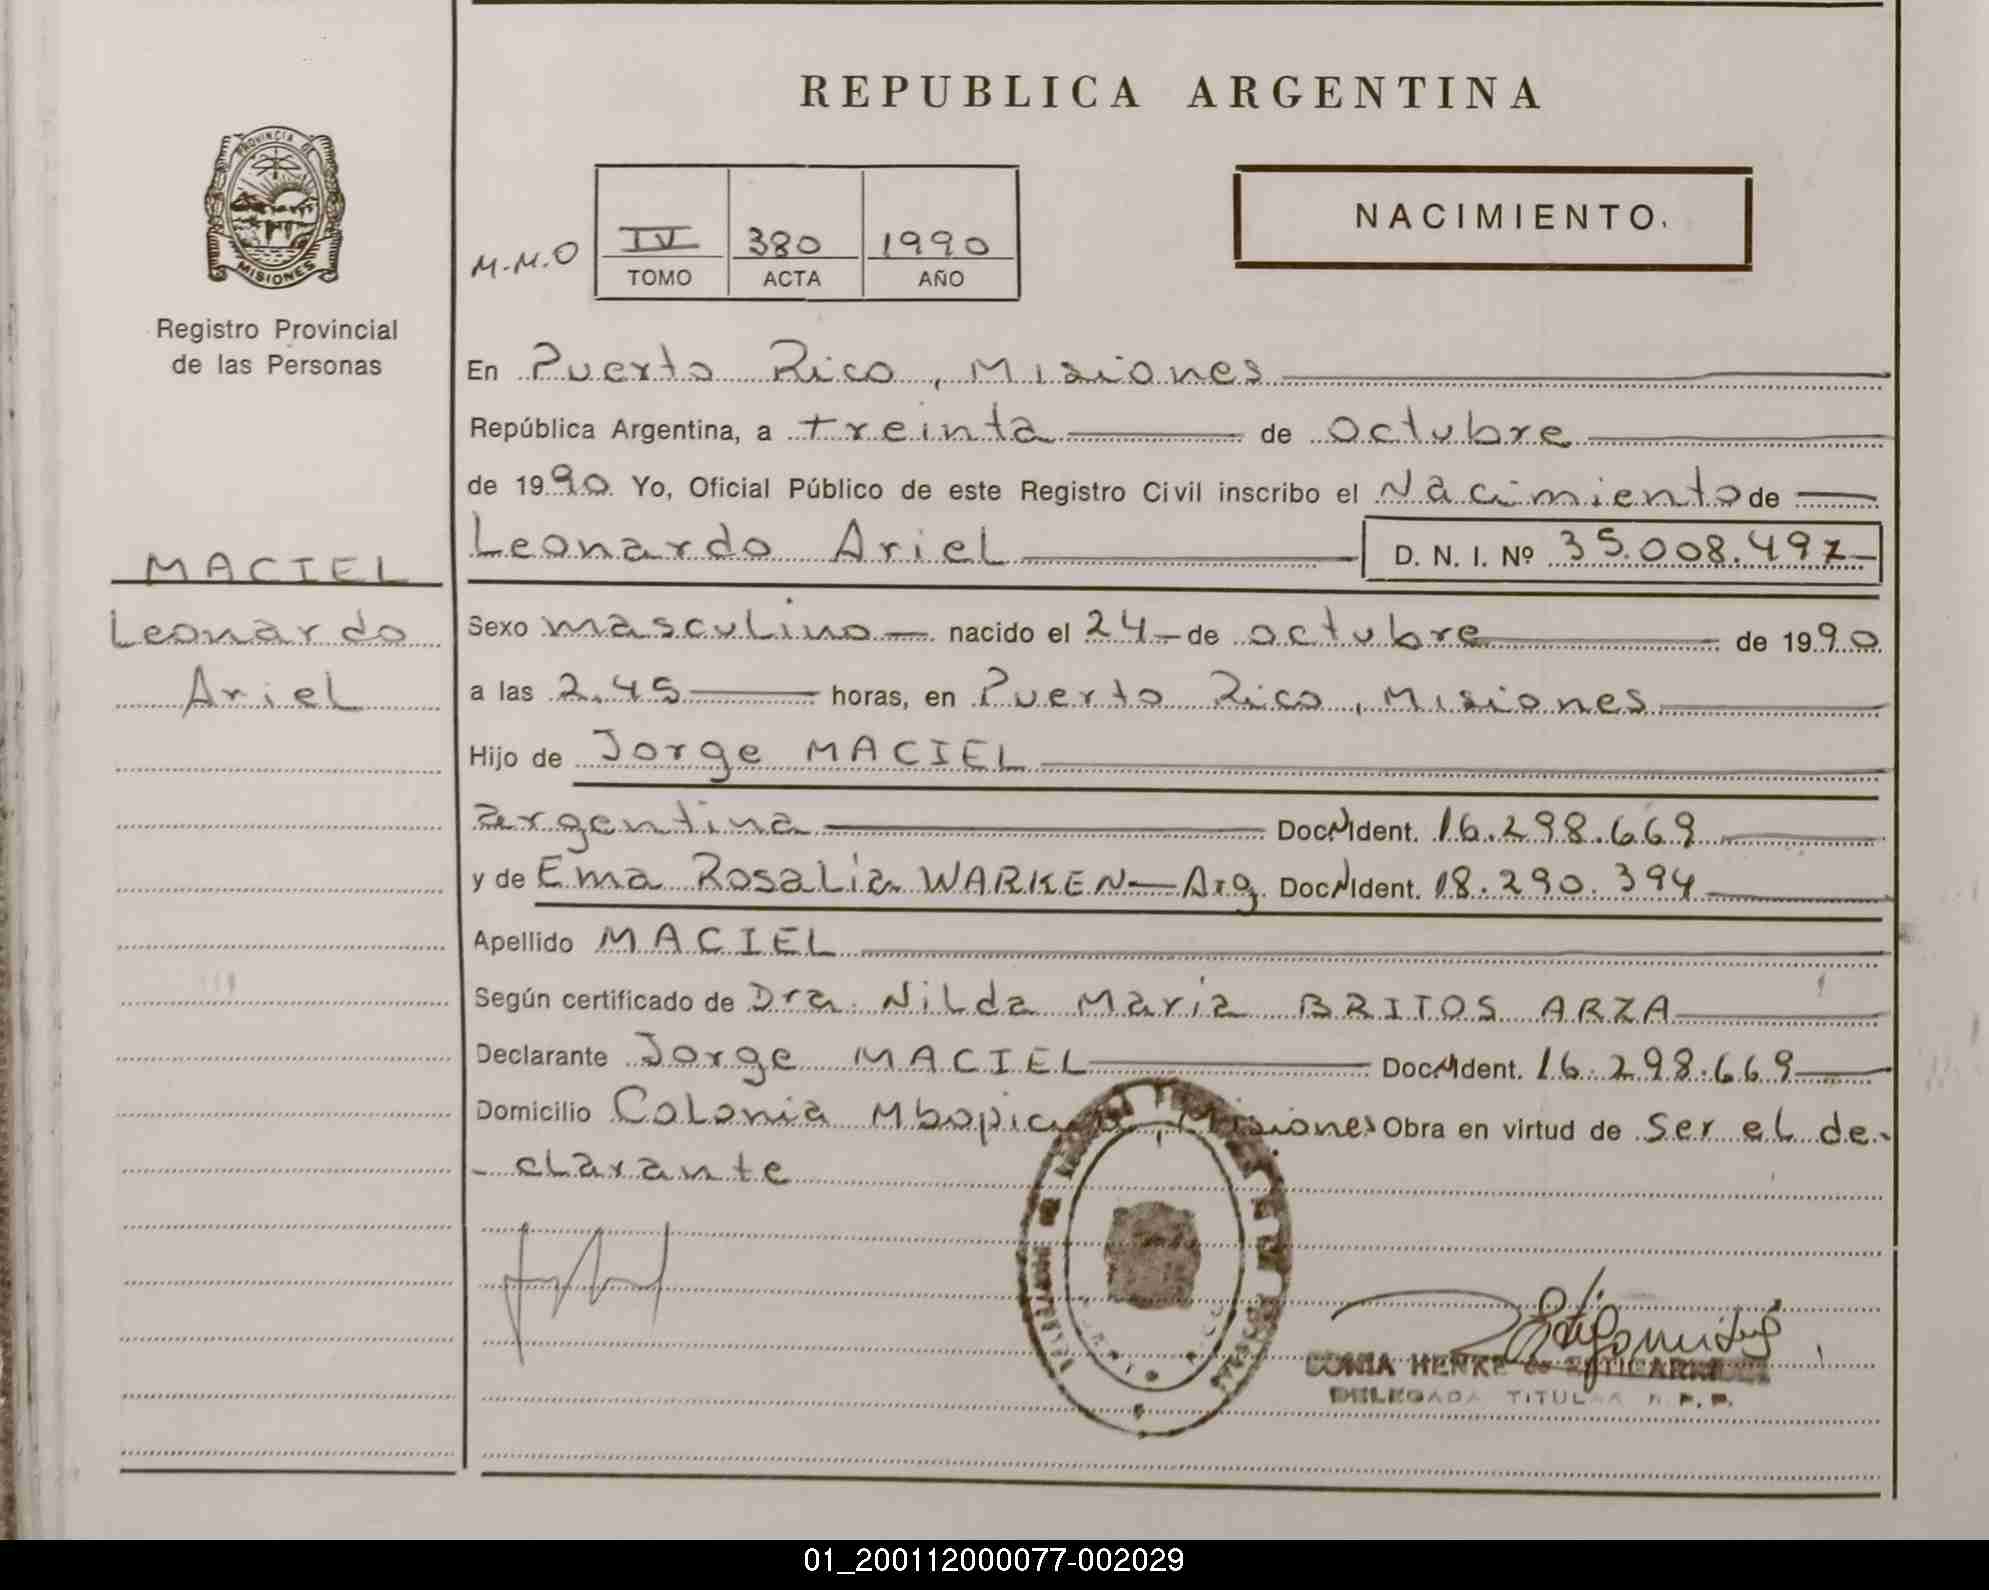 REPUBLICA ARGENTINA
PROVINCIA DE
MISIONES
Registro Provincial
de las Personas
NACIMIENTO.
M.M.O
IV 380 1990
TOMO ACTA AÑO
En Puerto Rico, Misiones
República Argentina, a treinta de octubre
de 1990 Yo, Oficial Público de este Registro Civil inscribo el Nacimiento de
Leonardo Ariel D. N. I. Nº 35.008.497
MACIEL
Leonardo
Ariel
Sexo masculino nacido el 24 de octubre de 1990
a las 2.45 horas, en Puerto Rico, Misiones
Hijo de Jorge MACIEL
argentina Doc. Ident. 16.298.669
y de Ema Rosalia WARKEN - Arg. Doc. Ident. 18.290.394
Apellido MACIEL
Según certificado de Dra. Nilda Maria BRITOS ARZA
Declarante Jorge MACIEL Doc. Ident. 16.298.669
Domicilio Colonia Misiones Obra en virtud de Ser el de-
- clarante
SONIA HENKE de
DELEGADA TITULAR R.P.P.
01_200112000077-002029